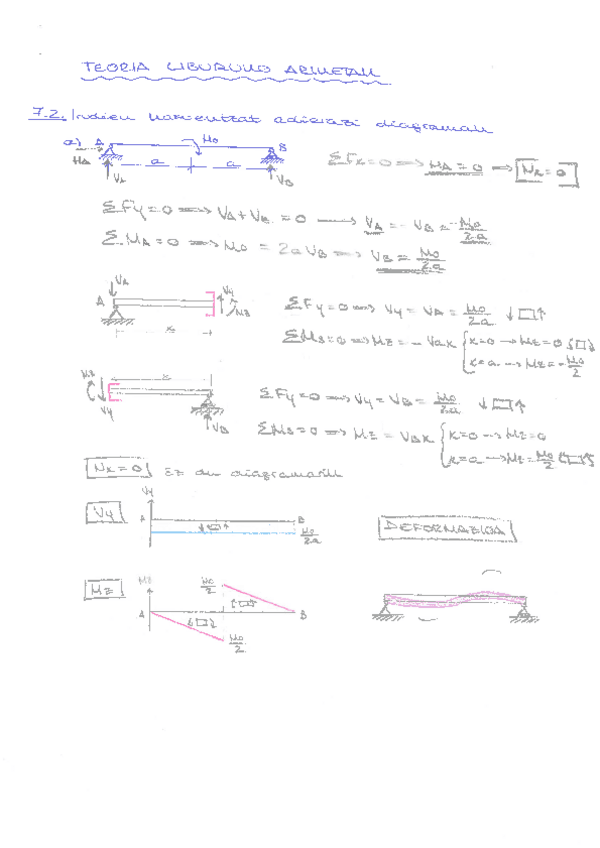 TEORIA LIBURUKO ARIKETAK
7.2. Indien kontzentrat adierazi diagramak
a) A Mo B
HA a a
VA VB
ΣFx=0 ⟹ HA=0 ⟹ Nx=0
ΣFy=0 ⟹ VA+VB=0 ⟶ VA=-VB=-Mo/2a
ΣMA=0 ⟹ Mo=2aVB ⟹ VB=Mo/2a
VA
A Vy Mz
x
ΣFy=0 ⟹ Vy=VA=Mo/2a ↓□↑
x=0 → Mz=0
x=a → Mz=-Mo/2
Mz x
Vy VB
ΣFy=0 ⟹ Vy=VB=Mo/2a ↓□↑
Mz=VBx
x=0 → Mz=0
x=a → Mz=Mo/2
Nx=0 Ez du diagramarik
Vy Vy A B ↓□↑ Mo/2a
DEFORMAZIOA
Mz Mz A B Mo/2
Mo/2